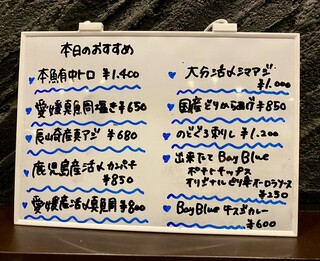 本日のおすすめ
本鮪中トロ ¥1.400
愛媛真鯛 ¥650
長崎産真アジ ¥680
鹿児島産活〆カンパチ
¥850
愛媛産活〆真鯛 ¥800
大分活〆シマアジ
¥1.000
国産とりから揚げ ¥850
のどぐろ刺し ¥1.200
出来たて Bay Blue
ポテトチップス
オーロラソース
¥250
Bay Blue チーズカレー
¥600